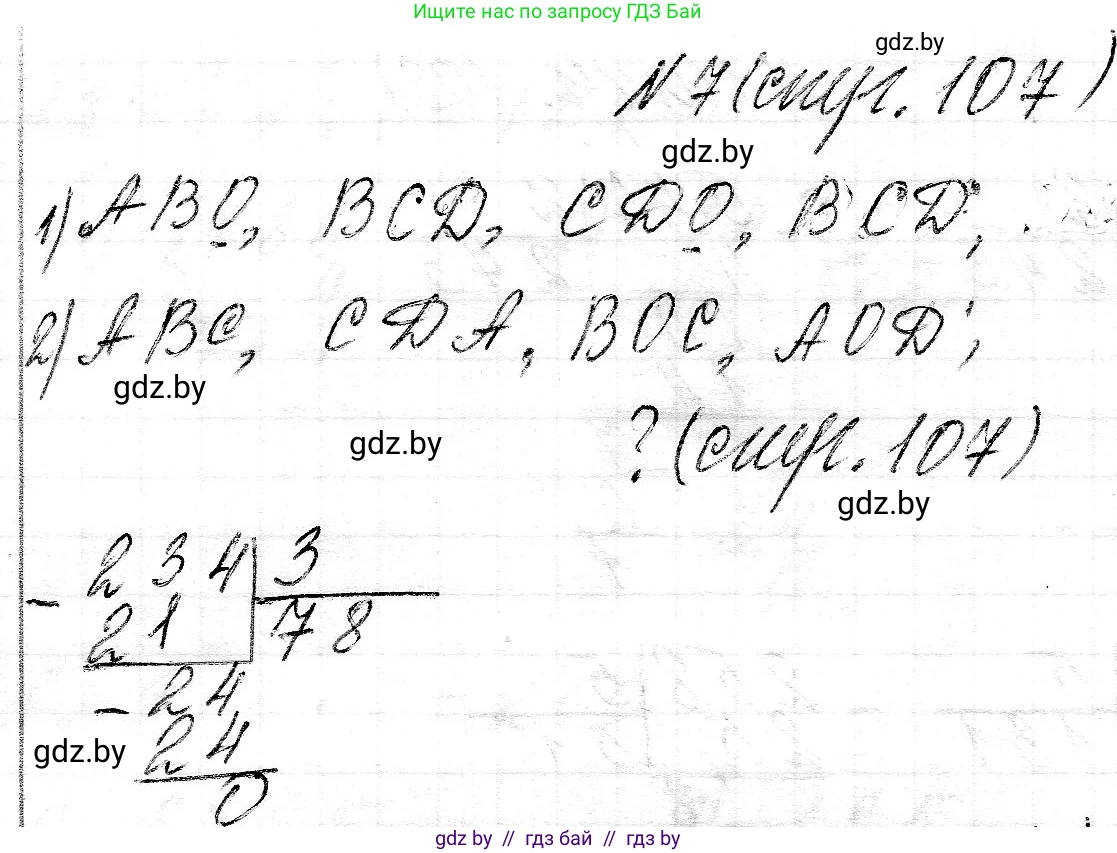 Ищите нас по запросу ГДЗ Бай
gdz.by
№ 7 (стр. 107)
gdz.by
1) ABO, BCD, CDO, BCD;
2) ABC, CDA, BOC, AOD;
gdz.by
gdz.by
? (стр. 107)
gdz.by
- 234 3
21 78
- 24
24
gdz.by
0
gdz by // гдз бай // gdz by